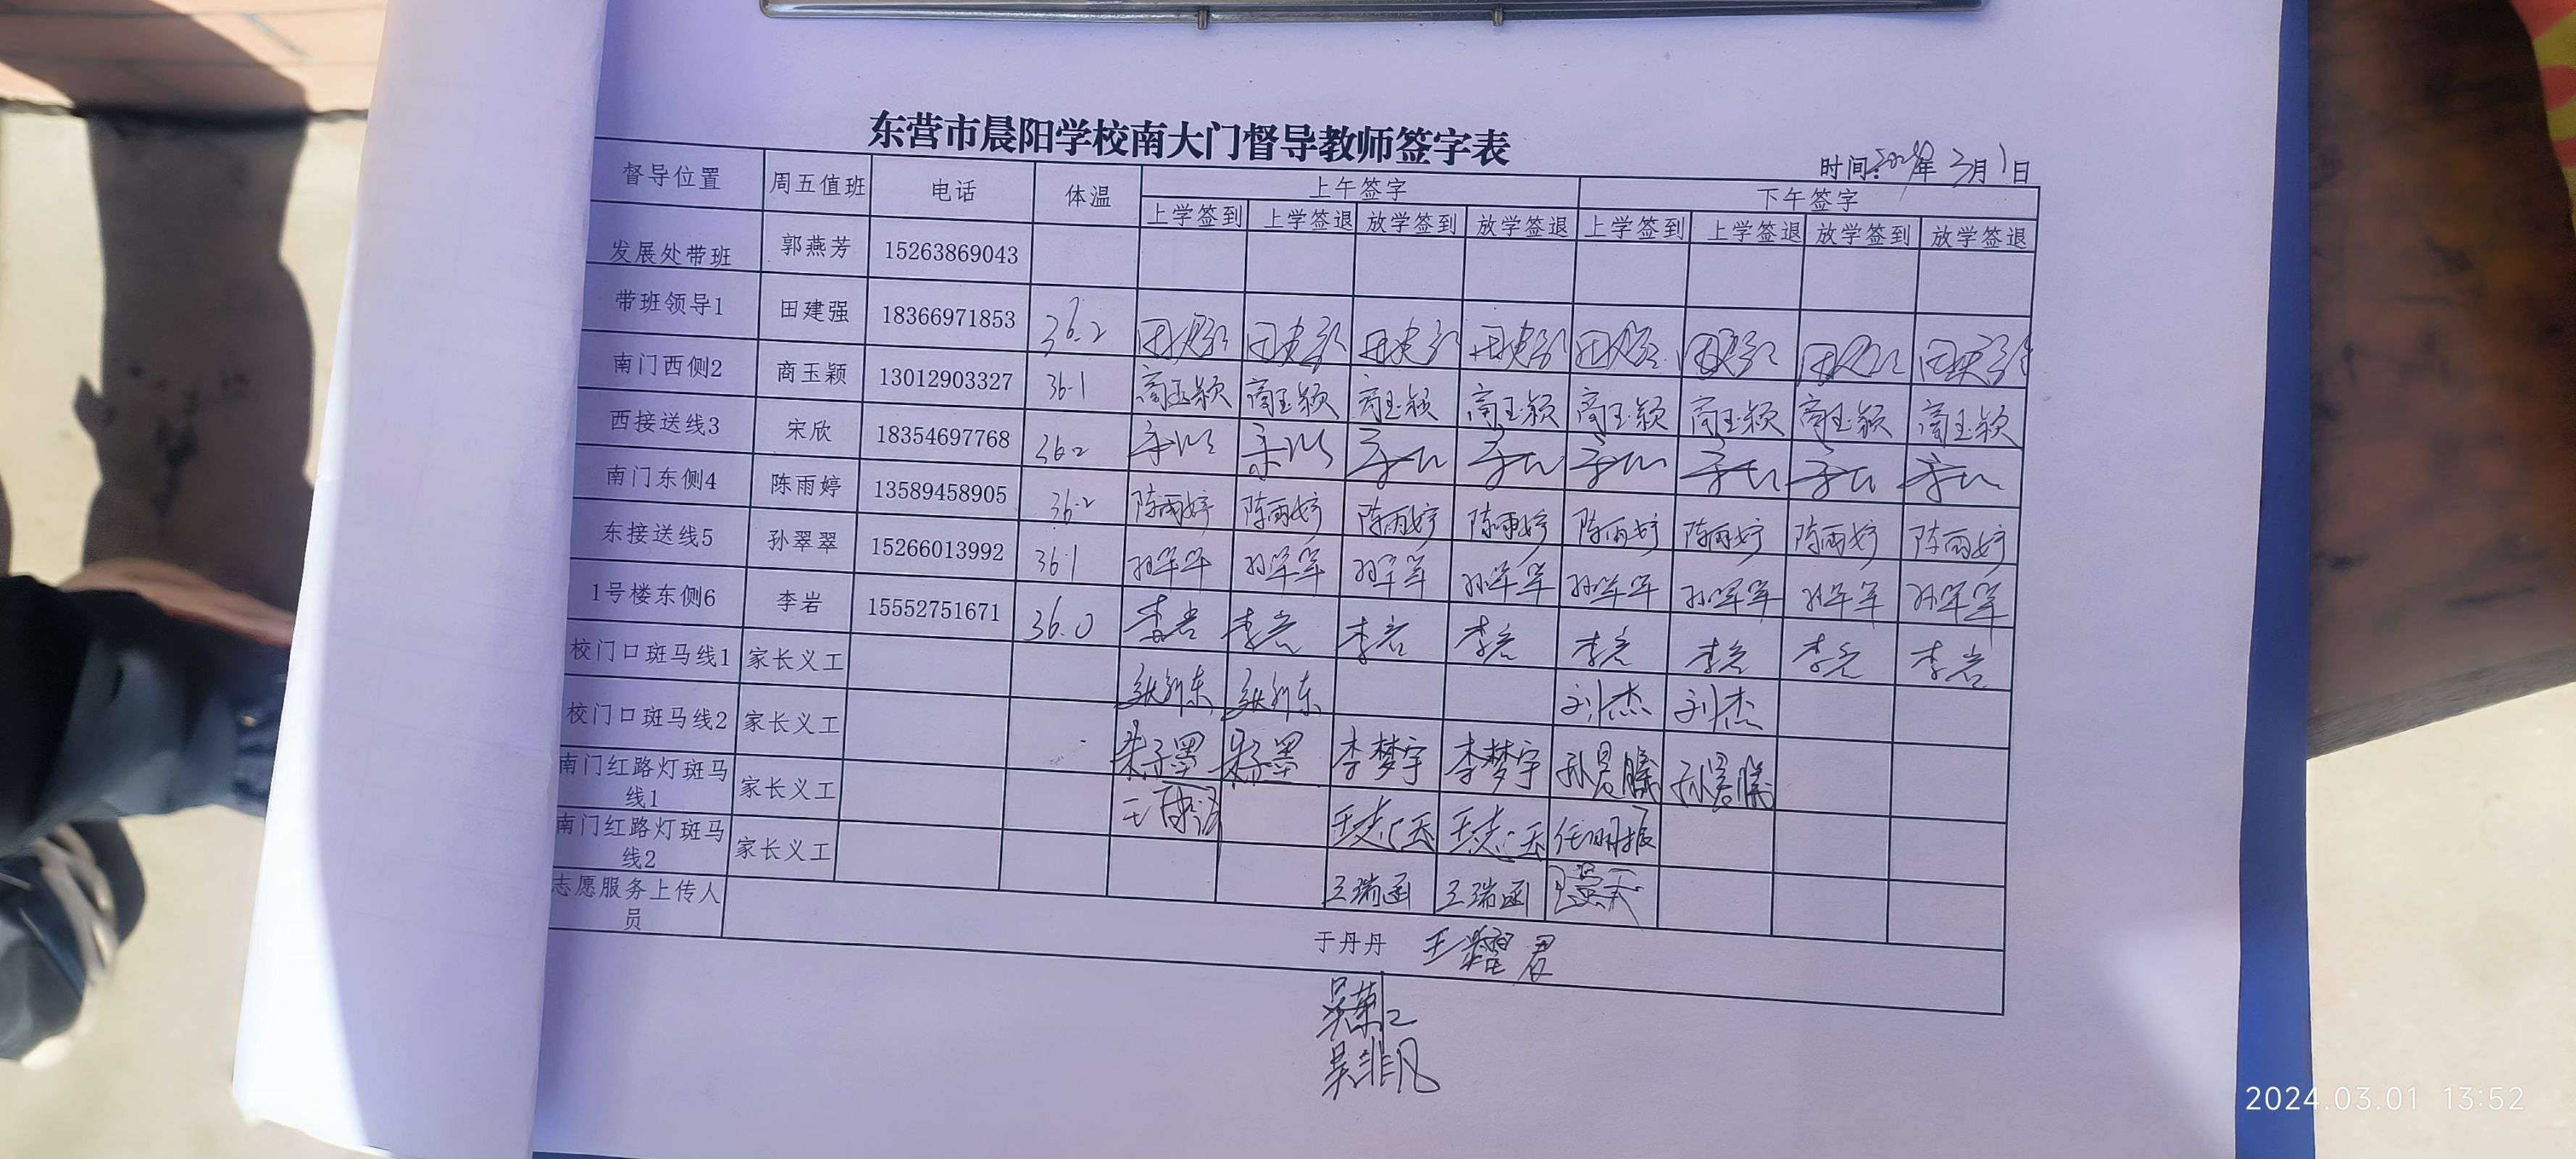 东营市晨阳学校南大门督导教师签字表
时间:2024年3月1日
督导位置 周五值班 电话 体温 上午签字 下午签字
上学签到 上学签退 放学签到 放学签退 上学签到 上学签退 放学签到 放学签退
发展处带班 郭燕芳 15263869043
带班领导1 田建强 18366971853 36.2 田建强 田建强 田建强 田建强 田建强 田建强 田建强 田建强
南门西侧2 商玉颖 13012903327 36.1 商玉颖 商玉颖 商玉颖 商玉颖 商玉颖 商玉颖 商玉颖 商玉颖
西接送线3 宋欣 18354697768 36.2 宋欣 宋欣 宋欣 宋欣 宋欣 宋欣 宋欣 宋欣
南门东侧4 陈雨婷 13589458905 36.2 陈雨婷 陈雨婷 陈雨婷 陈雨婷 陈雨婷 陈雨婷 陈雨婷 陈雨婷
东接送线5 孙翠翠 15266013992 36.1 孙翠翠 孙翠翠 孙翠翠 孙翠翠 孙翠翠 孙翠翠 孙翠翠 孙翠翠
1号楼东侧6 李岩 15552751671 36.0 李岩 李岩 李岩 李岩 李岩 李岩 李岩 李岩
校门口斑马线1 家长义工 刘杰 刘杰
校门口斑马线2 家长义工 朱子墨 朱子墨 李梦宇 李梦宇
南门红路灯斑马
线1 家长义工
南门红路灯斑马
线2 家长义工 王瑞函 王瑞函
志愿服务上传人
员 于丹丹 王耀君
吴非凡
2024.03.01 13:52